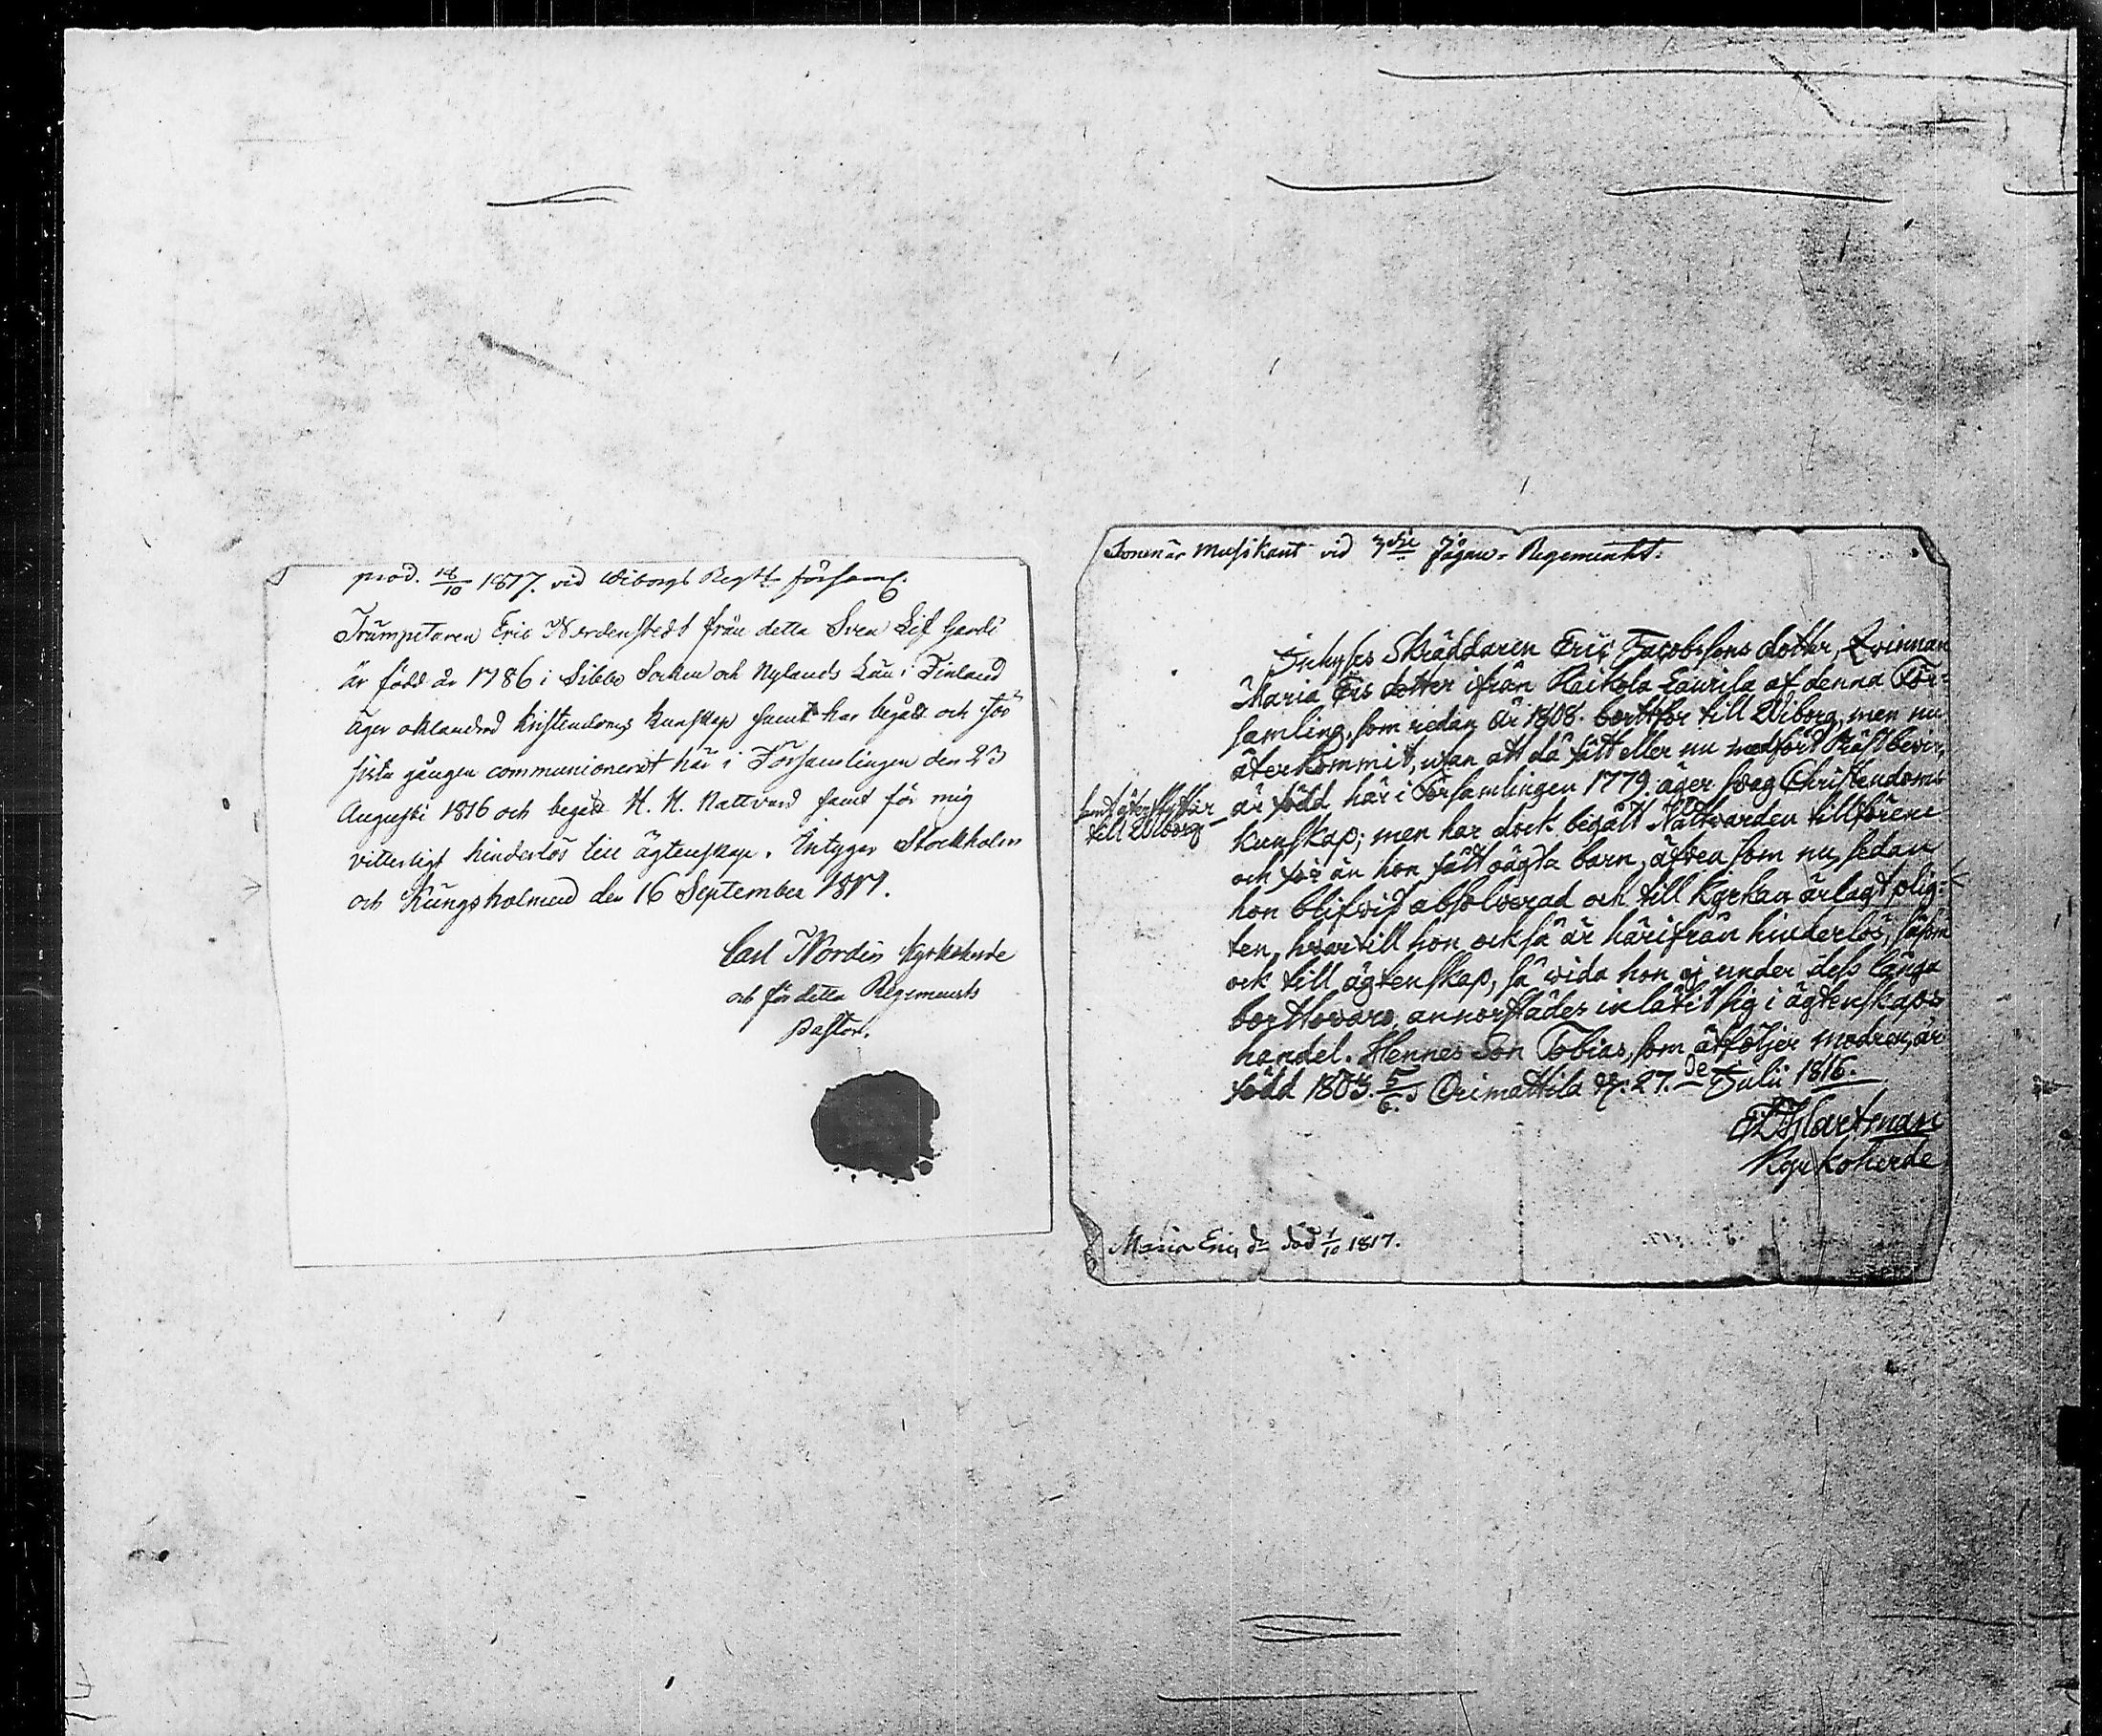 prod. 18/10 1817. vid Wiborgs Regtt församl.
Trumpetaren Eric Nordenstedt från detta Svea Lif Garde
är född år 1786 i Sibbo Socken och Nylands Län i Finland
äger oklandrad Kristendoms kunskap samt har begått och för
sista gången communicerat här i Församlingen den 23
Augusti 1816 och begått H. H. Nattvard samt för mig
vitterligt hinderlös till ägtenskap. Intygar Stockholm
och Kungsholmen den 16 September 1817.
Carl Nordin Kyrkoherde
och för detta Regements
Pastor.
Sonen är Musikant vid 3dje Jägare-Regementet.
Skräddaren Eric Jacobssons dotter, Qvinnan
Maria Ers dotter ifrån Heikola Laurila af denna För-
samling, som redan år 1808. bortfor till Wiborg, men nu
återkommit, utan att då fått eller nu medfört Prästbevis,
är född här i Församlingen 1779. äger svag Christendoms
samt återflyttar
till Wiborg
kunskap; men har dock begått Nattvarden tillförene
och för än hon fått oägta barn, äfven som nu sedan
hon blifvit absolverad och till Kyrkan ärlagt plig-
ten, hvartill hon också är härifrån hinderlös, såsom
ock till ägtenskap, så vida hon ej under dess långa
bortovaro annorstädes inlåtit sig i ägtenskaps
handel. Hennes Son Tobias, som åtföljer modren, är
född 1803. 5/6. Orimattila d. 27.de Julii 1816.
Hartman
Kyrkoherde
Maria Erics dr död 1/10 1817.